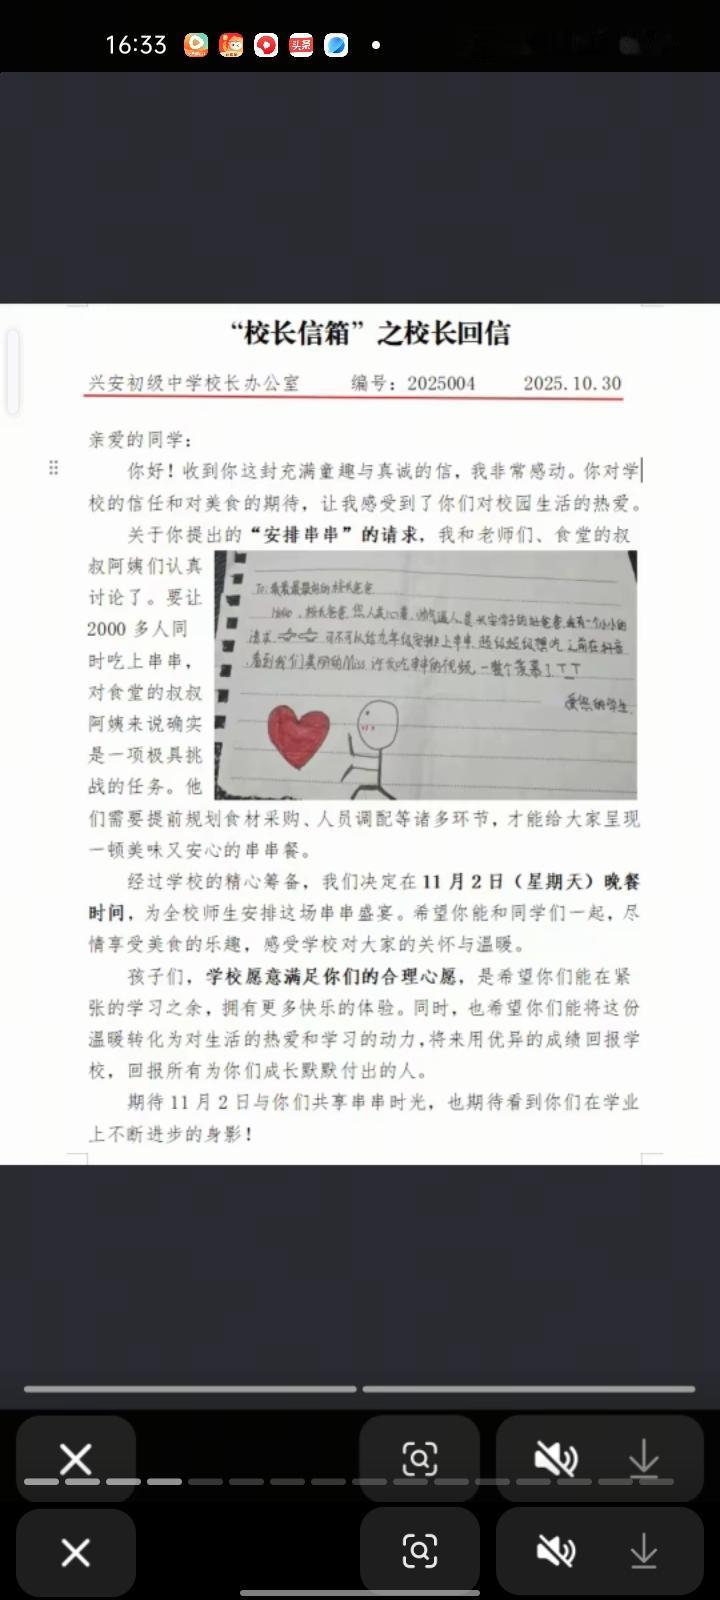 16:33
头条
“校长信箱”之校长回信
兴安初级中学校长办公室 编号：2025004 2025.10.30
亲爱的同学：
你好！收到你这封充满童趣与真诚的信，我非常感动。你对学
校的信任和对美食的期待，让我感受到了你们对校园生活的热爱。
关于你提出的“安排串串”的请求，我和老师们、食堂的叔
叔阿姨们认真
讨论了。要让
2000 多人同
时吃上串串，
对食堂的叔叔
阿姨来说确实
是一项极具挑
战的任务。他
To：我最最最好的校长爸爸
Hello，校长爸爸，您人美心善，帅气逼人，是兴安学子的好爸爸，我有一个小小的
请求，可不可以给九年级安排上串串，超级超级想吃，之前在抖音
看到我们美丽的Miss 许发吃串串的视频，一整个羡慕了TT
爱您的学生
们需要提前规划食材采购、人员调配等诸多环节，才能给大家呈现
一顿美味又安心的串串餐。
经过学校的精心筹备，我们决定在 11 月 2 日（星期天）晚餐
时问，为全校师生安排这场串串盛宴。希望你能和同学们一起，尽
情享受美食的乐趣，感受学校对大家的关怀与温暖。
孩子们，学校愿意满足你们的合理心愿，是希望你们能在紧
张的学习之余，拥有更多快乐的体验。同时，也希望你们能将这份
温暖转化为对生活的热爱和学习的动力，将来用优异的成绩回报学
校，回报所有为你们成长默默付出的人。
期待 11 月 2 日与你们共享串串时光，也期待看到你们在学业
上不断进步的身影！